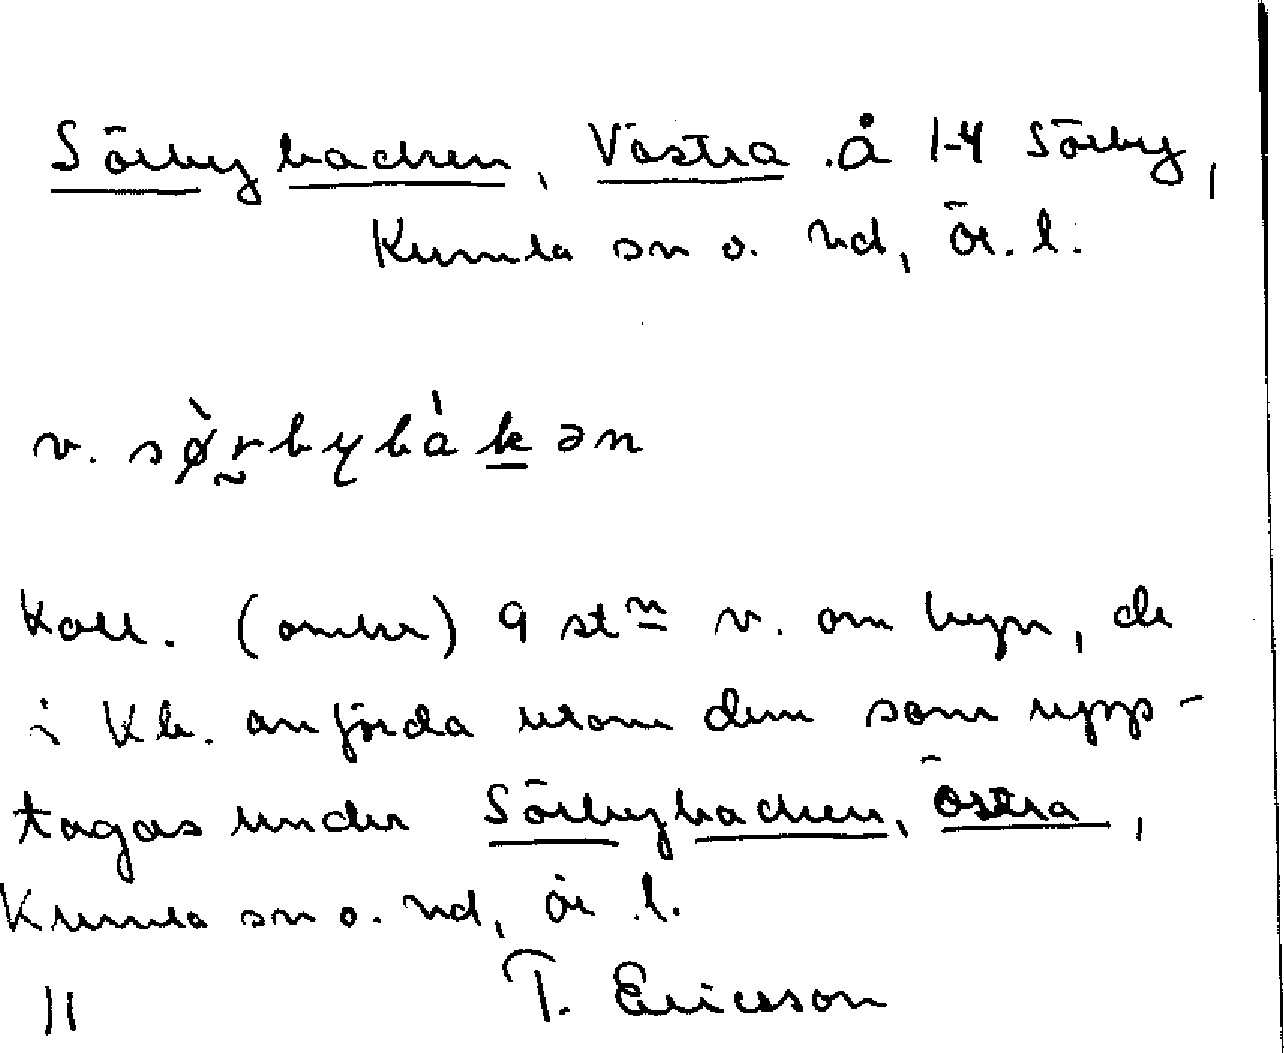 Sörbybacken, Västra å 1-4 Sörby,
Kumla sn o. hd, Ör. l.
v. sø̀rbybákən
Koll. (omkr) 9 st n v. om byn, de
i Kb. anförda utom dem som upp-
tagas under Sörbybacken, Östra,
Kumla sn o. hd, Ör. l.
11 T. Ericsson